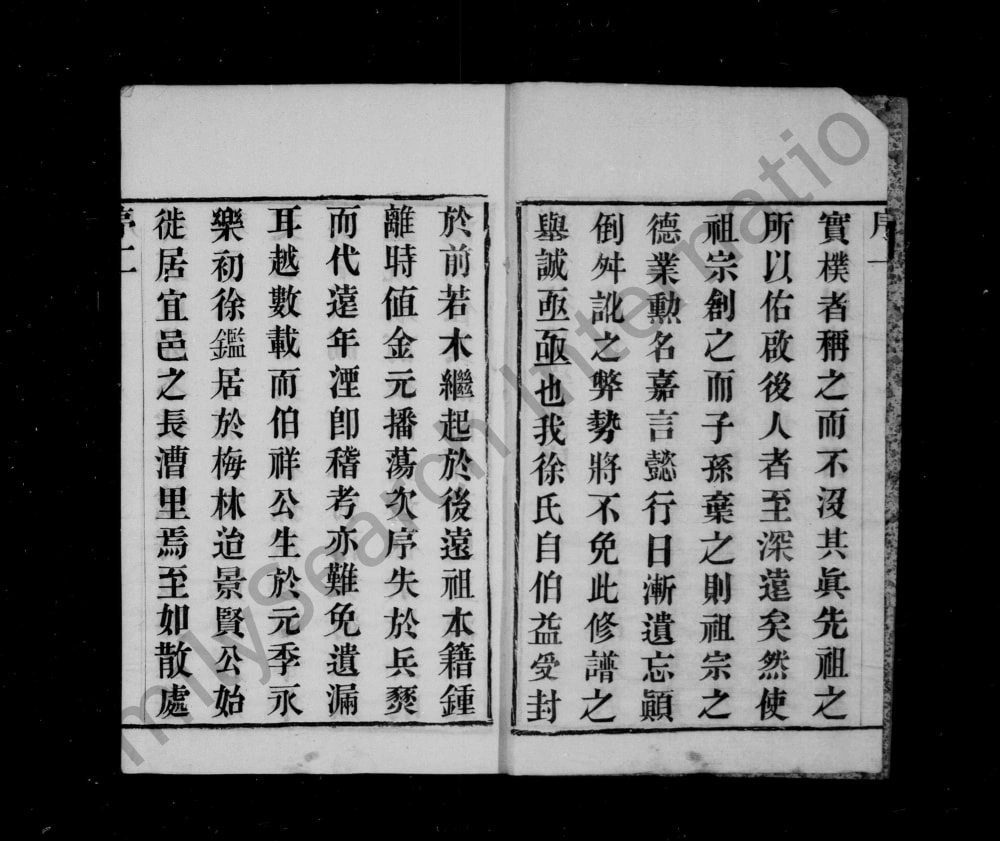 序一
實樸者稱之而不沒其眞先祖之
所以佑啟後人者至深遠矣然使
祖宗創之而子孫棄之則祖宗之
德業勳名嘉言懿行日漸遺忘顚
倒舛訛之弊勢將不免此修譜之
舉誠亟亟也我徐氏自伯益受封
於前若木繼起於後遠祖本籍鍾
離時值金元播蕩次序失於兵燹
而代遠年湮卽稽考亦難免遺漏
耳越數載而伯祥公生於元季永
樂初徐鑑居於梅林迨景賢公始
徙居宜邑之長漕里焉至如散處
序二
milysearch Internatio